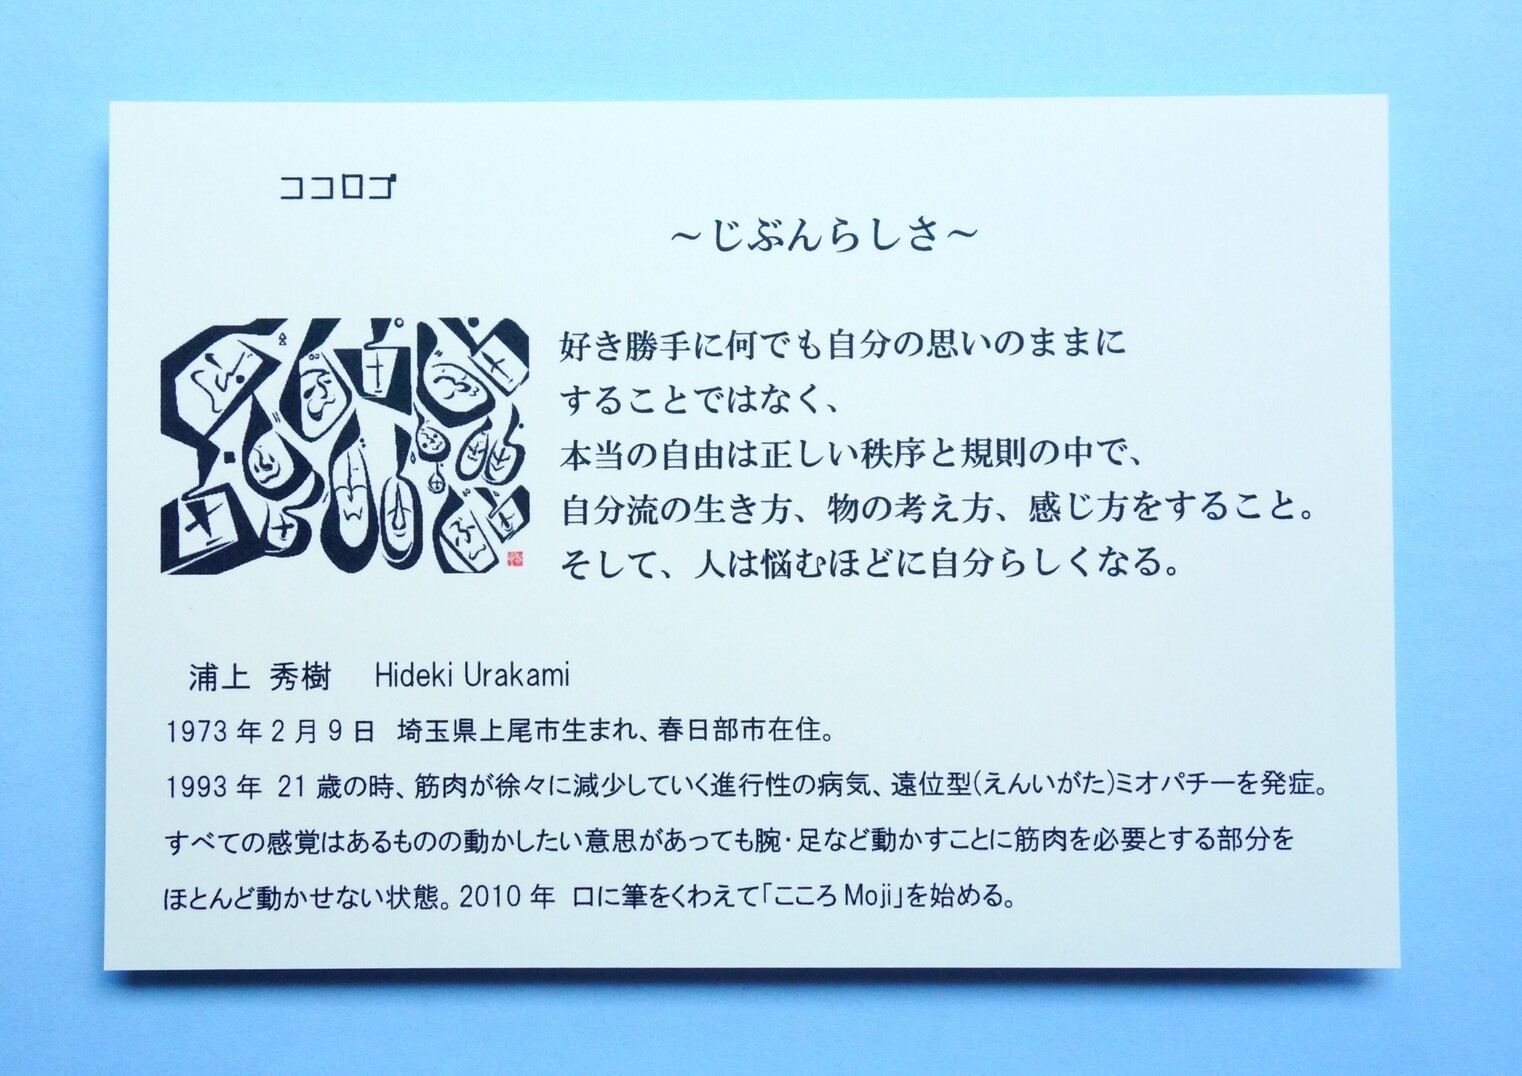 ココロゴ
～じぶんらしさ～
好き勝手に何でも自分の思いのままに
することではなく、
本当の自由は正しい秩序と規則の中で、
自分流の生き方、物の考え方、感じ方をすること。
そして、人は悩むほどに自分らしくなる。
浦上 秀樹 Hideki Urakami
1973年2月9日 埼玉県上尾市生まれ、春日部市在住。
1993年 21歳の時、筋肉が徐々に減少していく進行性の病気、遠位型(えんいがた)ミオパチーを発症。
すべての感覚はあるものの動かしたい意思があっても腕・足など動かすことに筋肉を必要とする部分を
ほとんど動かせない状態。2010年 口に筆をくわえて「こころMoji」を始める。